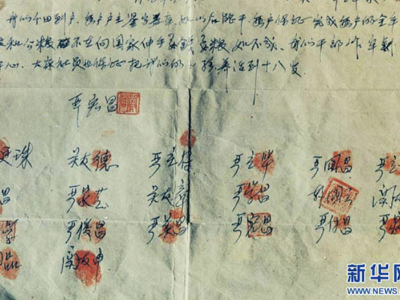 我们分田到户，每户户主签字盖章，如以后能干，每户保证完成每户的全年
交和公粮。不在向国家伸手要钱要粮。如不成，我们干部作牢
干心，大家社员也保证把我们的小孩养活到十八岁
严宏昌
珠 关友德 严立符 严立华 严国昌 严立
昌 严家芝 关友章 严学昌 韩国云 关友
学 严俊昌 严美昌 严宏昌 严付昌
品 关友申
新华网